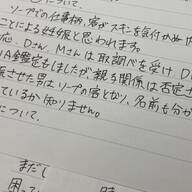 ソープでの仕事柄、客がスキンを気付かぬ内
ことによる妊娠と思われます。
応、Dさん、Mさんは取調べを受け、D
NA鑑定もしましたが親子関係は否定さ
させた男はソープの客となり、名前も分か
ているか知りません。
について、
まだし
困って
時